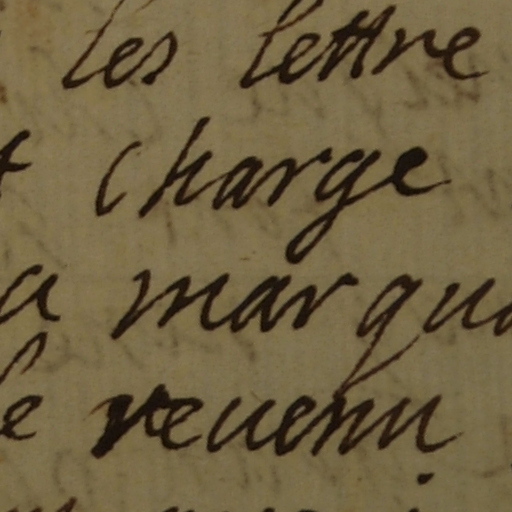 les lettre
charge
a marqu
le revenu